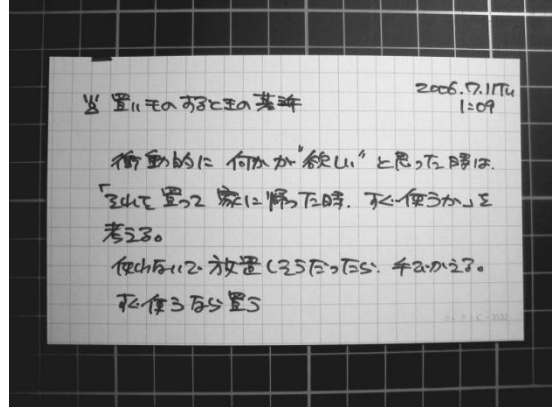 2006.7.11Tu
1:09
買いものするときの
衝動的に 何かが"欲しい"と思った時は.
「それを買って 家に帰った時. すぐ使うか」を
考える。
使わないで 放置しそうだったら. 手びかえる。
すぐ使うなら買う